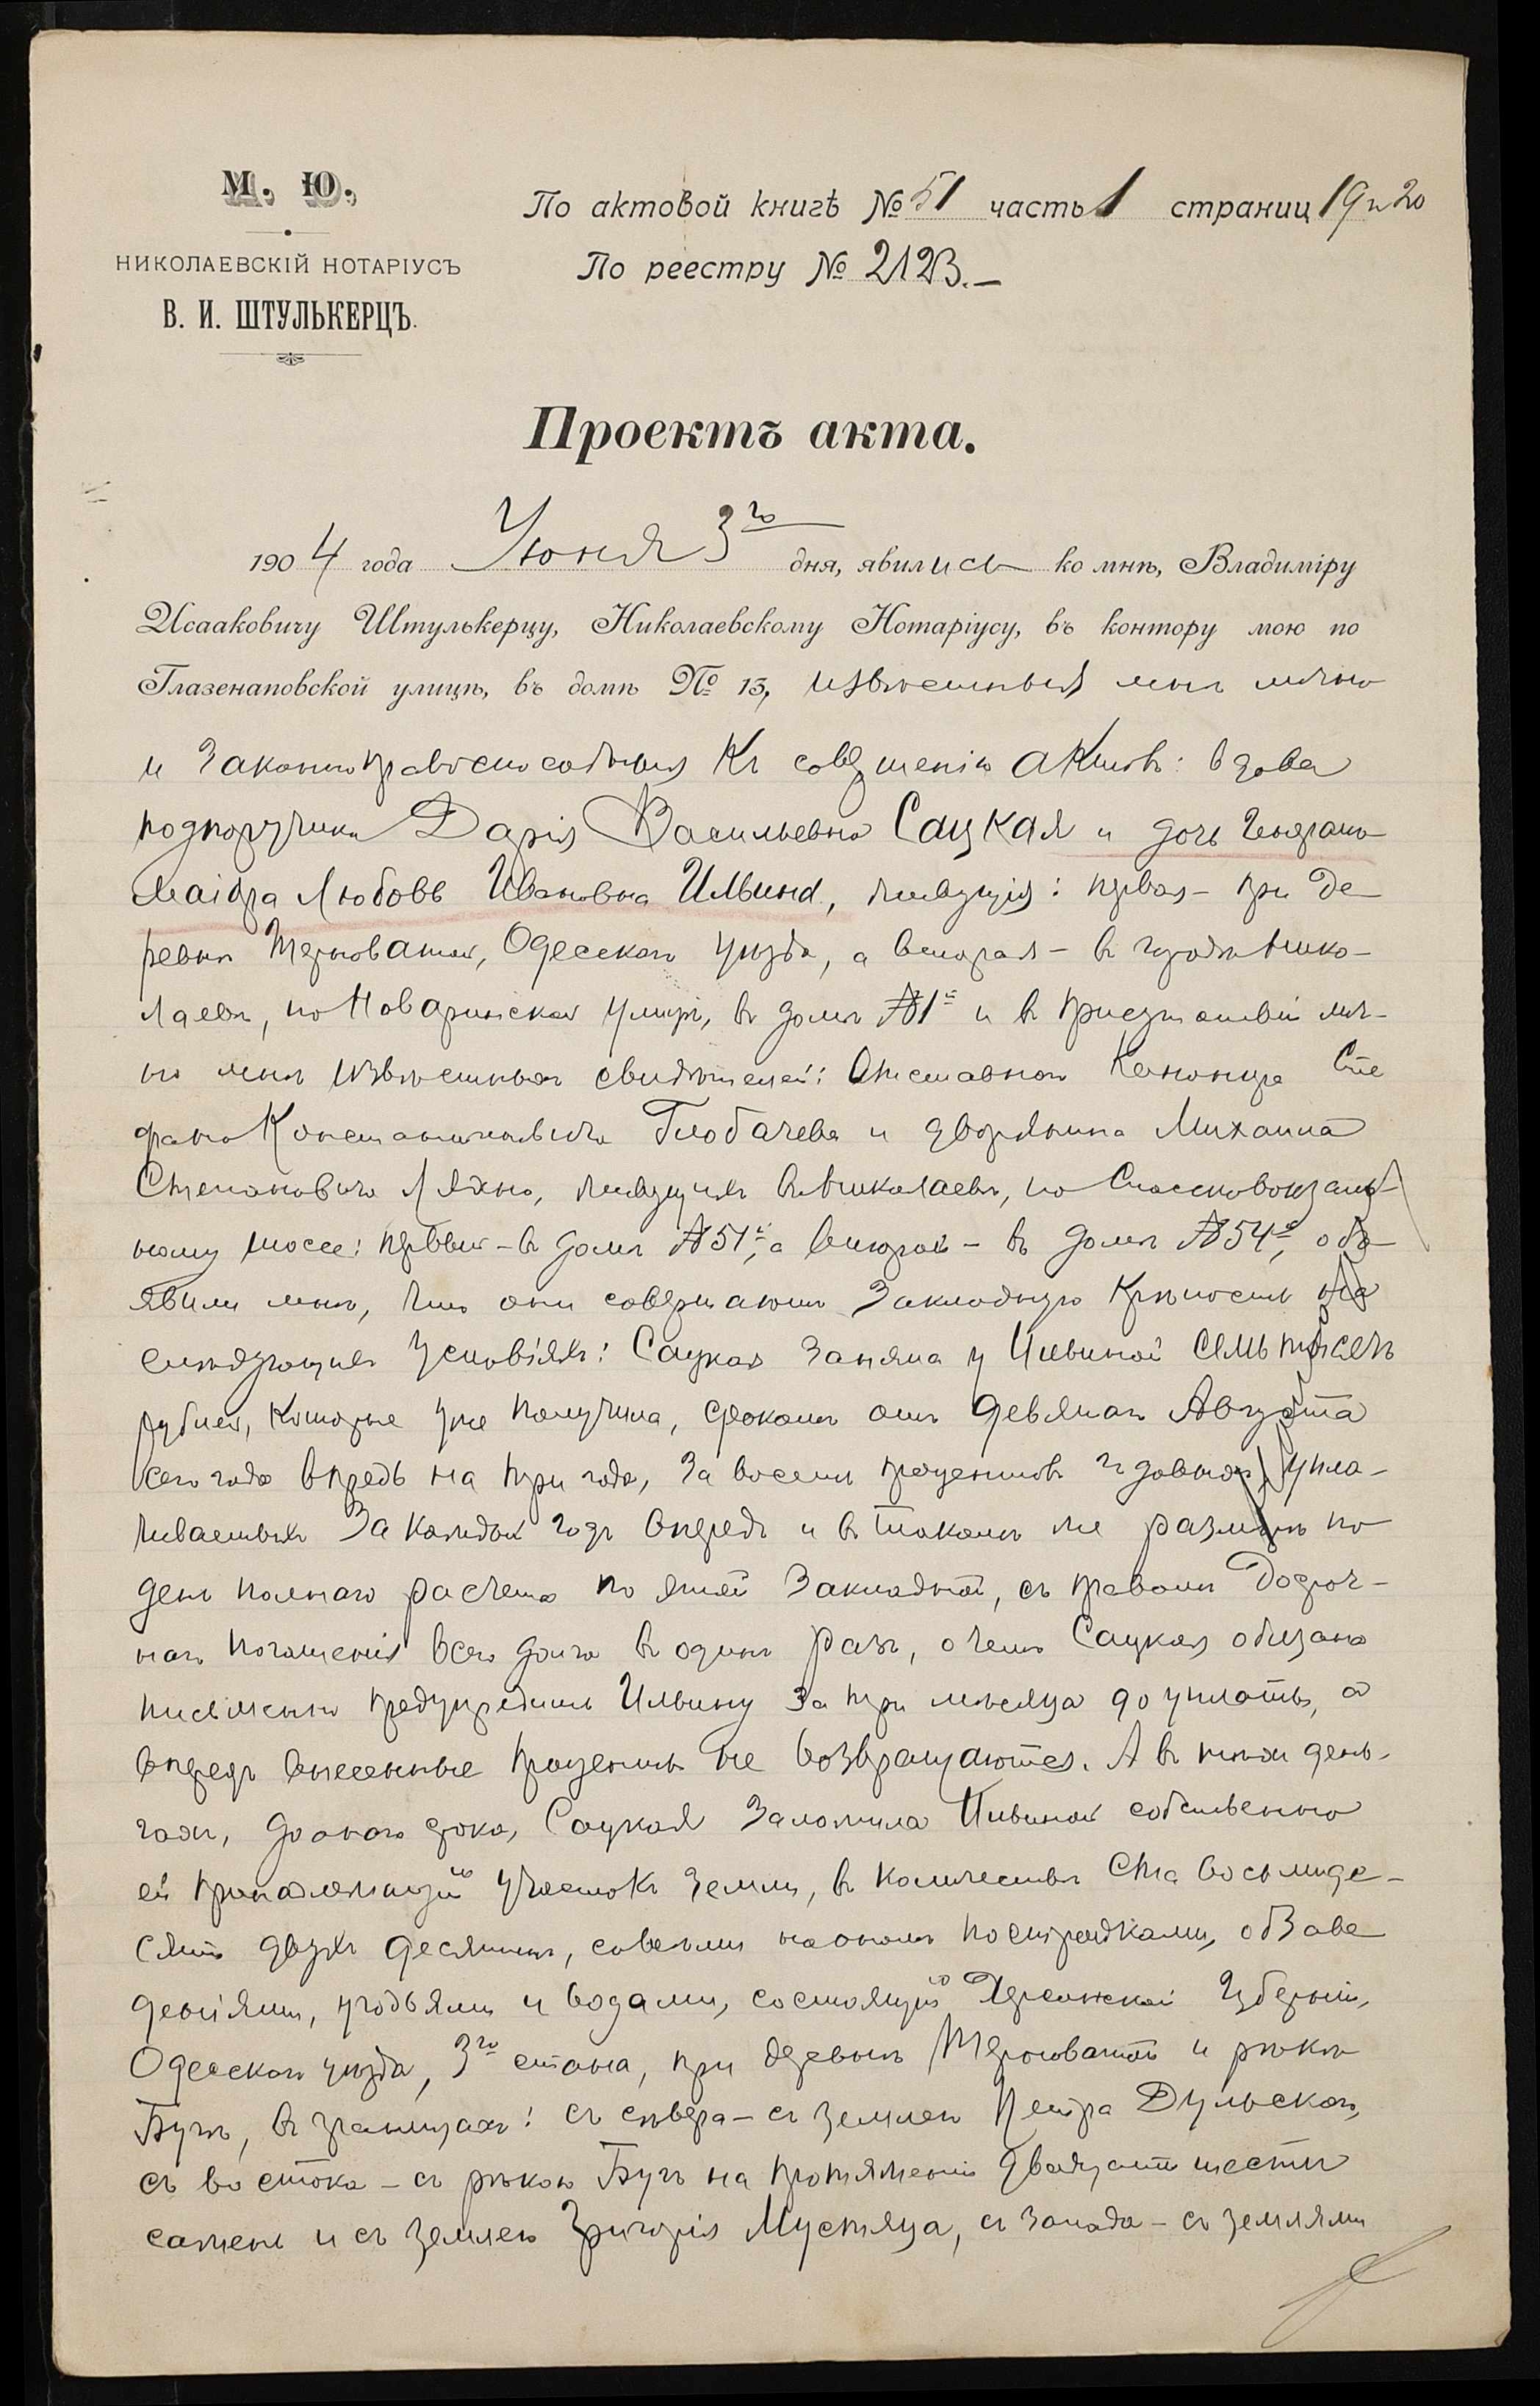 М. Ю.
НИКОЛАЕВСКІЙ НОТАРІУСЪ
В. И. ШТУЛЬКЕРЦЪ.
По актовой книгѣ № 51 часть 1 страниц 19 и 20
По реестру № 2123.—
Проектъ акта.
1904 года Iюня 3го дня, явились ко мнѣ, Владиміру
Исааковичу Штулькерцу, Николаевскому Нотаріусу, въ контору мою по
Глазенаповской улицѣ, въ домѣ № 13, извѣстныя мнѣ лично
и законно правоспособныя къ совершенію актовъ: вдова
подпоручика Дарія Васильевна Сацкая и дочь Генералъ
Маіора Любовь Ивановна Ильина, живущія: первая - при де-
ревнѣ Терноватой, Одесскаго уѣзда, а вторая - въ городѣ Нико-
лаевѣ, по Наваринской улицѣ, въ домѣ №1й и въ присутствіи лич-
но мнѣ извѣстныхъ свидѣтелей: Отставного Канонира Сте
фана Константиновича Глобачева и дворянина Михаила
Степановича Ляхно, живущихъ въ Николаевѣ, по Спассковокзаль-
ному шоссе: первый - въ домѣ №51й, а второй - въ домѣ №54й, объ-
явили мнѣ, что они совершаютъ закладную крѣпость на
слѣдующихъ условіяхъ: Сацкая заняла у Ильиной семь тысячъ
рублей, которые уже получила, срокомъ отъ девятаго Августа
сего года впредь на три года, за восемь процентовъ годовыхъ, упла-
чиваемыхъ за каждый годъ впередъ и въ такомъ же размѣрѣ по
день полнаго расчета по этой закладной, съ правомъ досроч-
наго погашенія всего долга въ одинъ разъ, о чемъ Сацкая обязана
письменно предупредить Ильину за три мѣсяца до уплаты, а
впередъ внесенные проценты не возвращаются. А въ тѣхъ день-
гахъ, до онаго срока, Сацкая заложила Ильиной собственно
ей принадлежащій участокъ земли, въ количествѣ ста восьмиде-
сяти двухъ десятинъ, со всѣми на ономъ постройками, обзаве
деніями, угодьями и водами, состоящій Херсонской Губерніи,
Одесскаго уѣзда, 3го стана, при деревнѣ Терноватой и рѣкѣ
Бугъ, въ границахъ: съ сѣвера - съ землею Петра Дульскаго,
съ востока - съ рѣкою Бугъ на протяженіи двадцати шести
сажень и съ землею Григорія Мустяца, съ запада - съ землями